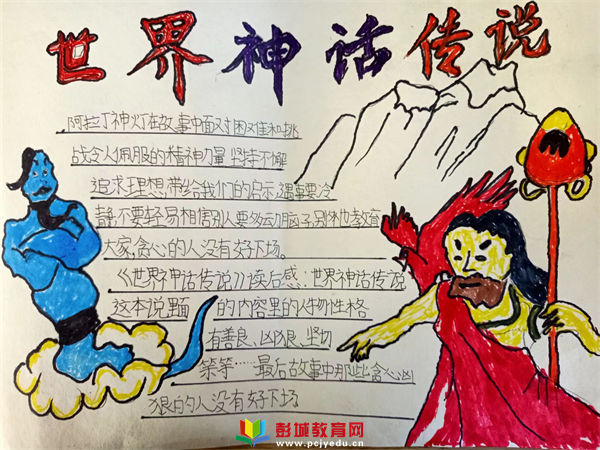 世界神话传说
阿拉丁神灯在故事中面对困难和挑
战令人佩服的精神力量坚持不懈
追求理想,带给我们的启示,遇事要冷
静,不要轻易相信别人要多动脑子,另外也教育
大家,贪心的人没有好下场。
《世界神话传说》读后感:世界神话传说
这本说里面的内容里的人物性格
有善良、凶狠、坚切
等等……最后故事中那些贪心凶
狠的的人没有好下场
彭城教育网
www.pcjyedu.cn